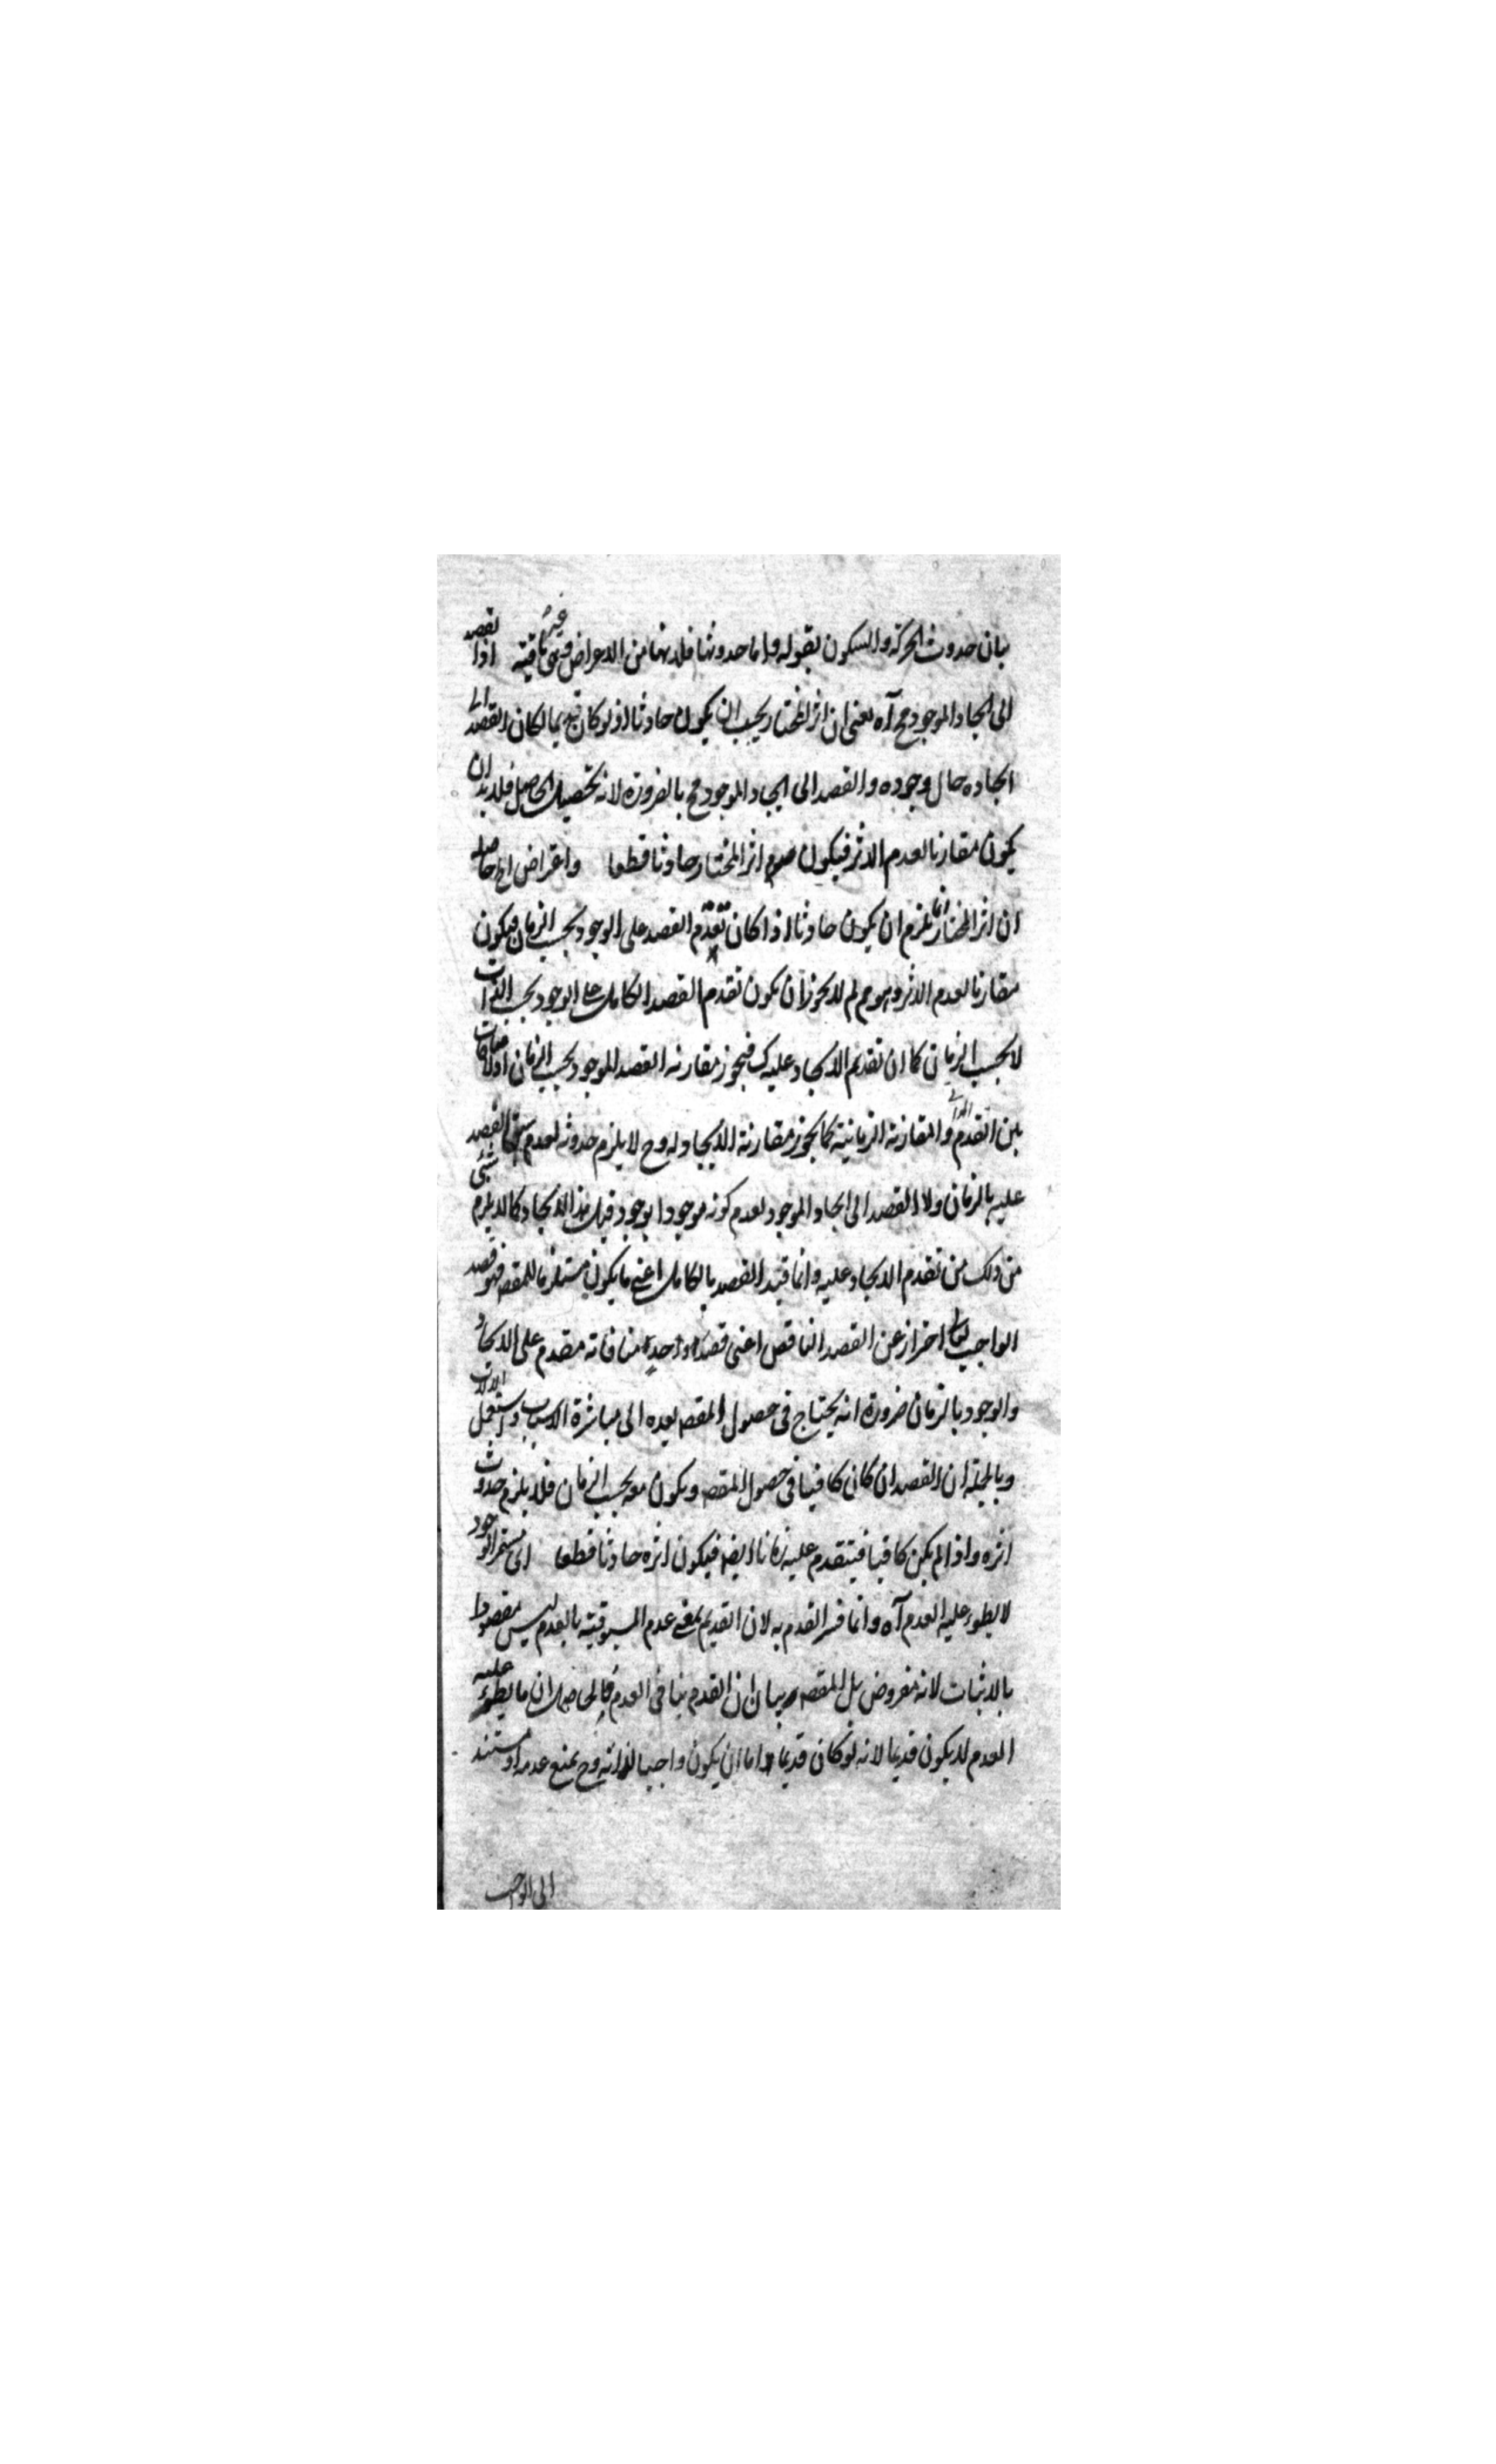 بيان حدوث الحركة والسكون بقوله واما حدوثها فلانها من الاعراض وهي غير باقية اذا لقصد
الى ايجاد الموجود مح آه يعني ان اثر المختار يجب ان يكون حادثا اذ لو كان قديما لكان القصد الى
ايجاده حال وجوده والقصد الى ايجاد الموجود مح بالضرورة لانه تحصيل الحاصل فلا بد ان
يكون مقارنا لعدم الاثر فيكون اثر المختار حادثا قطعا واعتراض الخ حاصله
ان اثر المختار انما يلزم ان يكون حادثا اذا كان تقدم القصد على الوجود بحسب الزمان فيكون
مقارنا لعدم الاثر وهو مم لم لا يجوز ان يكون تقدم القصد الكامل على الوجود بحسب الذات
لا بحسب الزمان كما ان تقدم الايجاد عليه ك فيجوز مقارنة القصد للوجود بحسب الزمان اذ لا منافات
بين التقدم الذاتي والمقارنة الزمانية كما يجوز مقارنة الايجاد له وح لا يلزم حدوثه لعدم سبق القصد
عليه بالزمان ولا القصد الى ايجاد الموجود لعدم كونه موجودا بوجود قبل هذا الايجاد كما لا يلزم شئ
من ذلك من تقدم الايجاد عليه وانما قيد القصد بالكامل اعني ما يكون مستلزما للمقصو فهو قصد
الواجب تعالى احتراز عن القصد الناقص اعني قصد احدنا فانه مقدم على الايجاد
والوجود بالزمان ضرورة انه يحتاج في حصول المقصو بعده الى مباشرة الاسباب واستعمال الالات
وبالجملة ان القصد ان كان كافيا في حصول المقصو ويكون معه بحسب الزمان فلا يلزم حدوث
اثره واذا لم يكن كافيا فيتقدم عليه زمانا ايضا فيكون اثره حادثا قطعا اى مستمر الوجود
لا يطرء عليه العدم آه وانما فسر القدم به لان القديم بمعنى عدم المسبوقية بالعدم ليس مقصودا
بالاثبات لانه مفروض بل المقصو بيان ان القدم ينافى العدم فالحاصل ان ما يطرء عليه
العدم لا يكون قديما لانه لو كان قديما اما ان يكون واجبا لذاته وح يمنع عدمه او مستند
الى الواجب